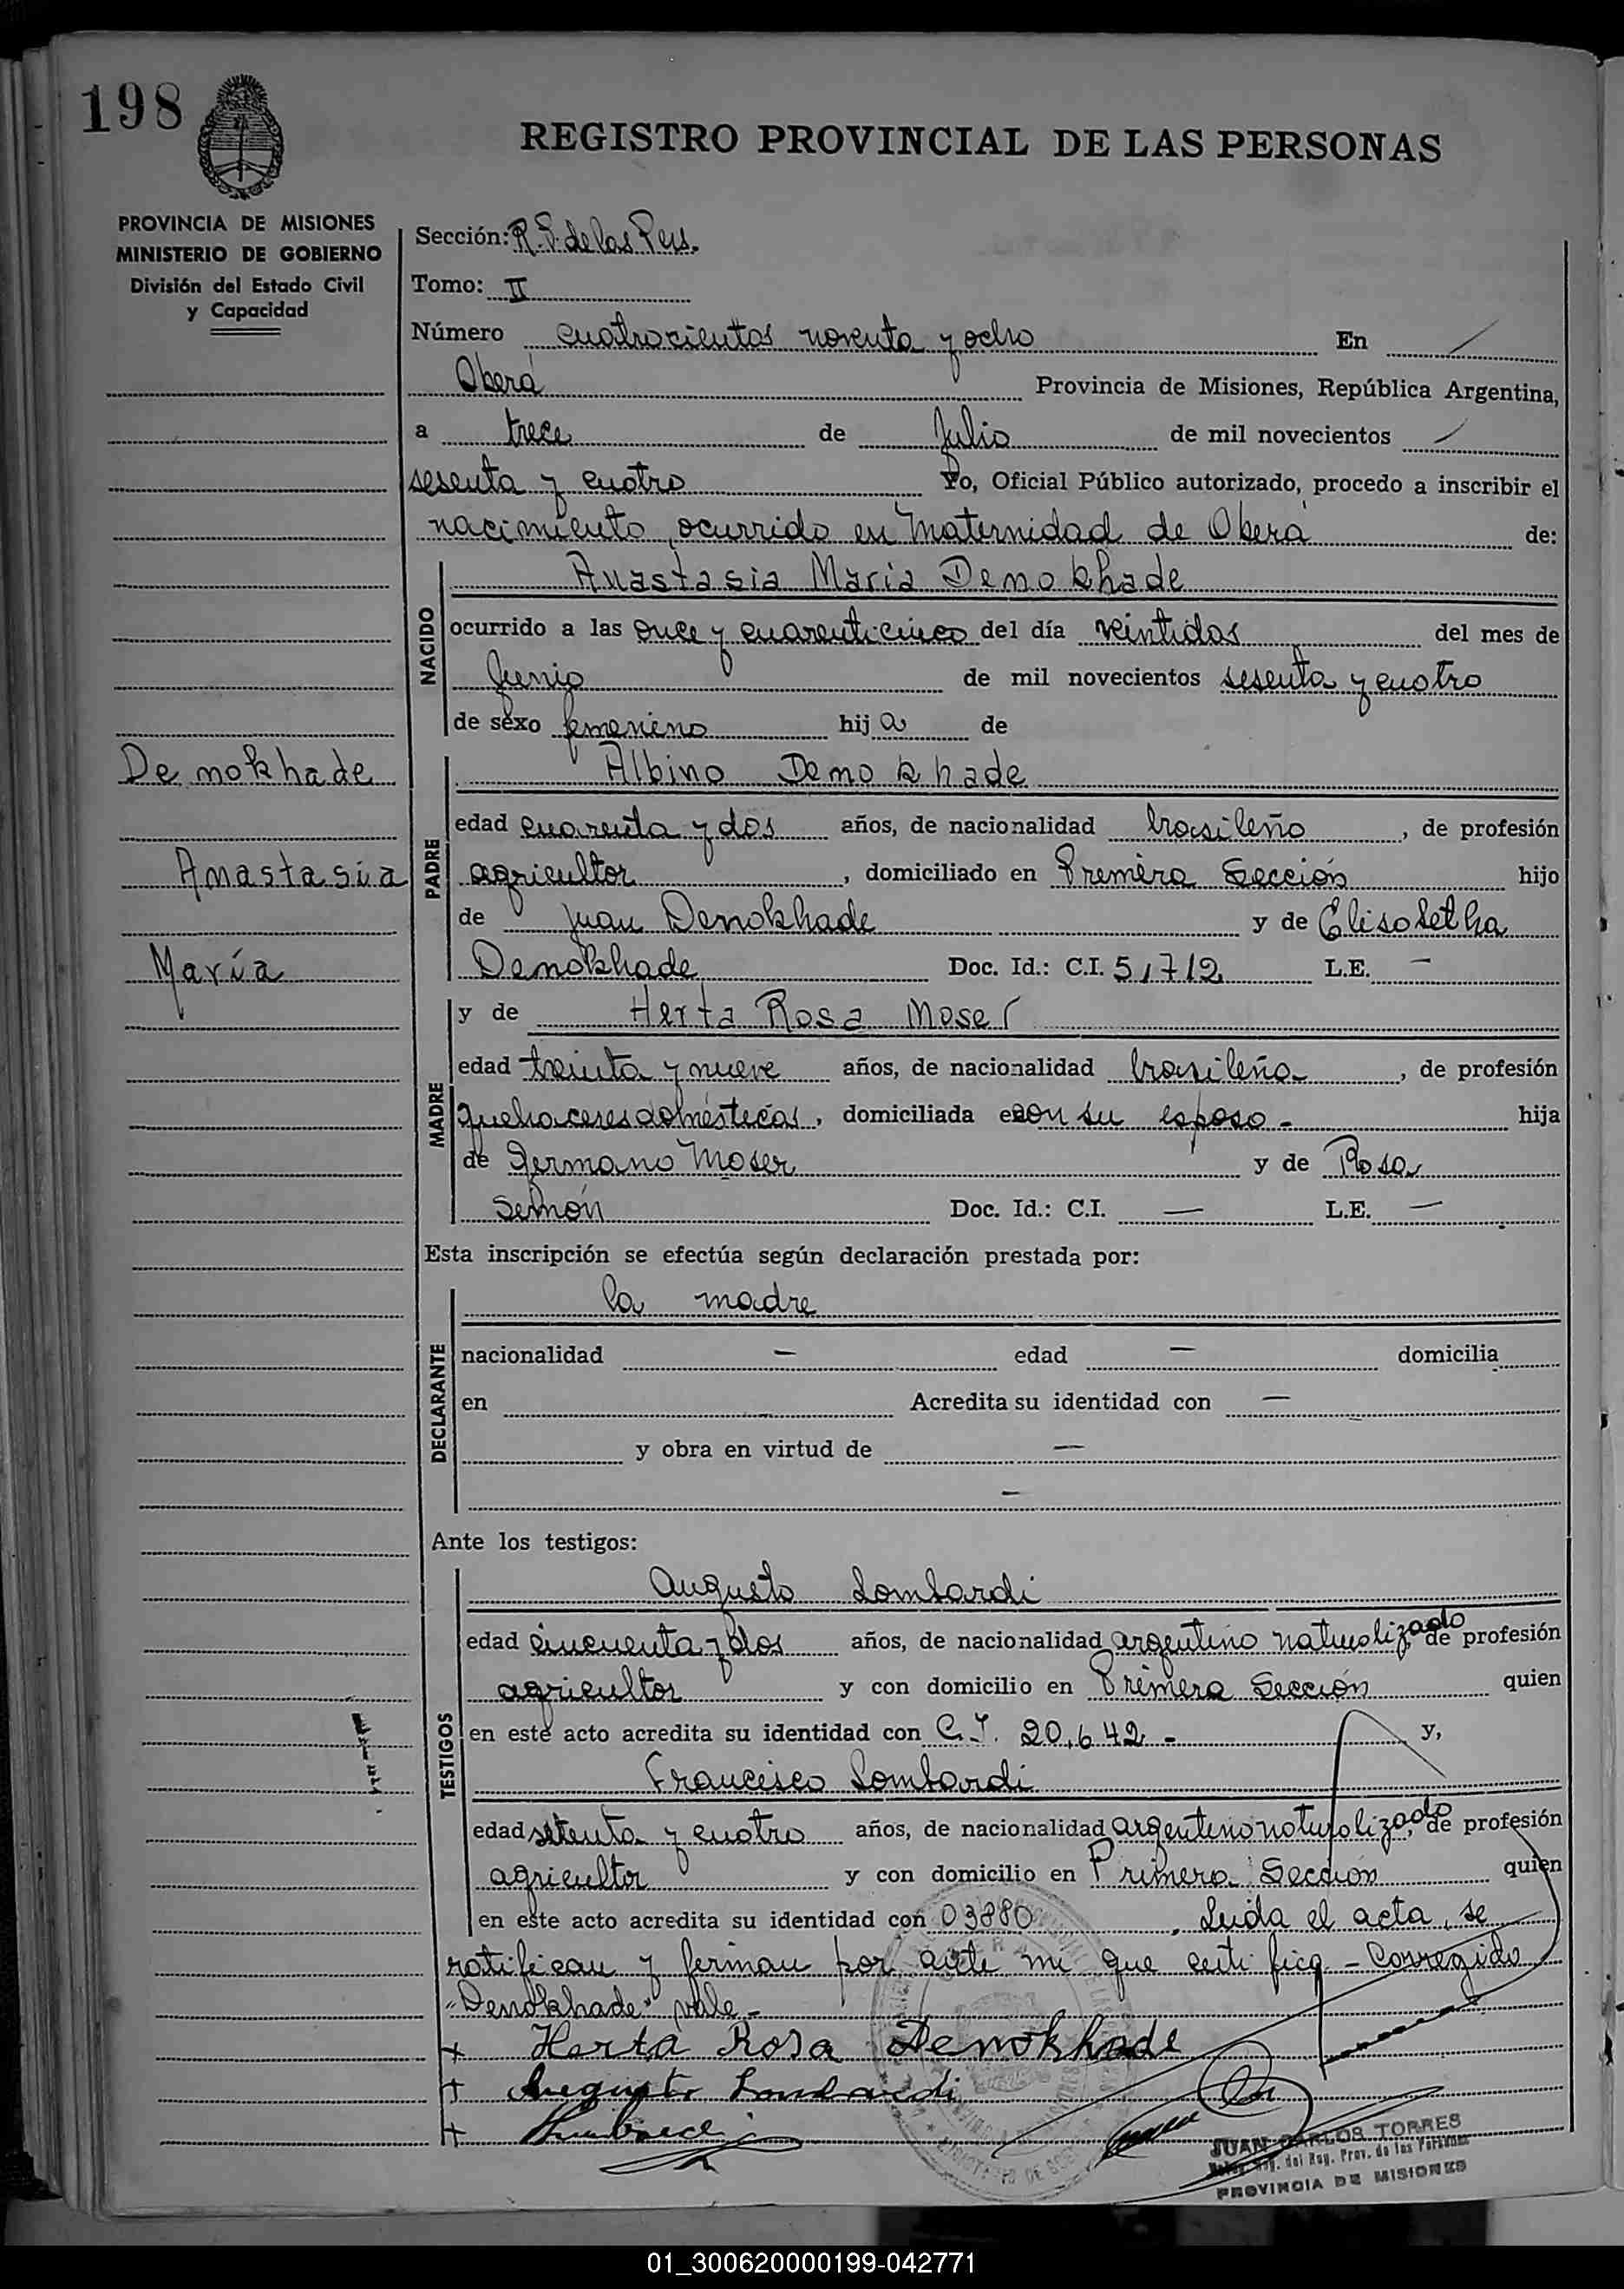 198
REGISTRO PROVINCIAL DE LAS PERSONAS
PROVINCIA DE MISIONES
MINISTERIO DE GOBIERNO
División del Estado Civil
y Capacidad
Sección: R. P. de las Pers.
Tomo: II
Número cuatrocientos noventa y ocho En
Oberá Provincia de Misiones, República Argentina,
a trece de Julio de mil novecientos
sesenta y cuatro Yo, Oficial Público autorizado, procedo a inscribir el
nacimiento ocurrido en Maternidad de Oberá de:
NACIDO
Anastasia María Denokhade
ocurrido a las once y cuarenticinco del día veintidos del mes de
Junio de mil novecientos sesenta y cuatro
de sexo femenino hija de
Denokhade
Anastasia
María
PADRE
Albino Denokhade
edad cuarenta y dos años, de nacionalidad brasileño, de profesión
agricultor, domiciliado en Primera Sección hijo
de Juan Denokhade y de Elisabetha
Denokhade Doc. Id.: C.I. 51712 L.E. —
MADRE
y de Herta Rosa Moser
edad treinta y nueve años, de nacionalidad brasileña, de profesión
quehaceres domésticas, domiciliada con su esposo - hija
de Germano Moser y de Rosa
Simón Doc. Id.: C.I. — L.E. —
Esta inscripción se efectúa según declaración prestada por:
DECLARANTE
la madre
nacionalidad — edad — domicilia
en - Acredita su identidad con —
y obra en virtud de —
—
Ante los testigos:
TESTIGOS
Augusto Lombardi
edad cincuenta y dos años, de nacionalidad argentino naturalizado, de profesión
agricultor y con domicilio en Primera Sección quien
en este acto acredita su identidad con C.I. 20.642 - y,
Francisco Lombardi
edad setenta y cuatro años, de nacionalidad argentino naturalizado, de profesión
agricultor y con domicilio en Primera Sección quien
en este acto acredita su identidad con 03880, Leida el acta, se
ratifican y firman por ante mi que certifico - Corregido
"Denokhade" vale -
+ Herta Rosa Denokhade
+ Augusto Lombardi
+
JUAN CARLOS TORRES
del Reg. Prov. de las Personas
PROVINCIA DE MISIONES
01_300620000199-042771